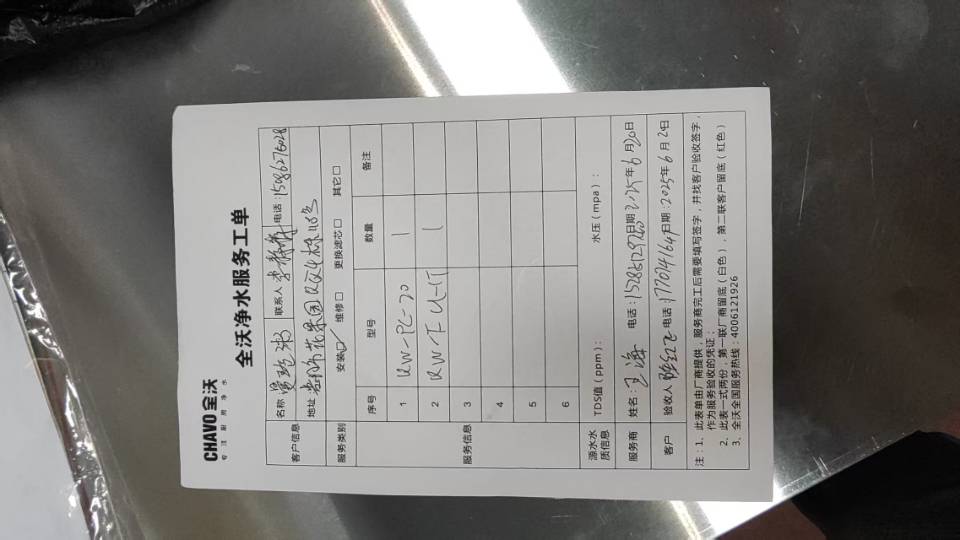 CHAVO全沃
专注厨房净水
全沃净水服务工单
客户信息 名称 联系人 李 电话:15862276028
地址 花果园
服务类别 安装☑ 维修□ 更换滤芯□ 其它□
服务信息 序号 型号 数量 备注
1 QW-PC-20 1
2 1
3
4
5
6
源水水质信息 TDS值(ppm): 水压(mpa):
服务商 姓名:王海 电话: 日期: 年6月20日
客户 验收人 电话:17701416471 日期:2025年6月20日
注:1、此表单由厂商提供,服务商完工后需要填写签字,并找客户验收签字,
作为服务验收的凭证;
2、此表一式两份,第一联厂商留底(白色),第二联客户留底(红色)
3、全沃全国服务热线:4006121926